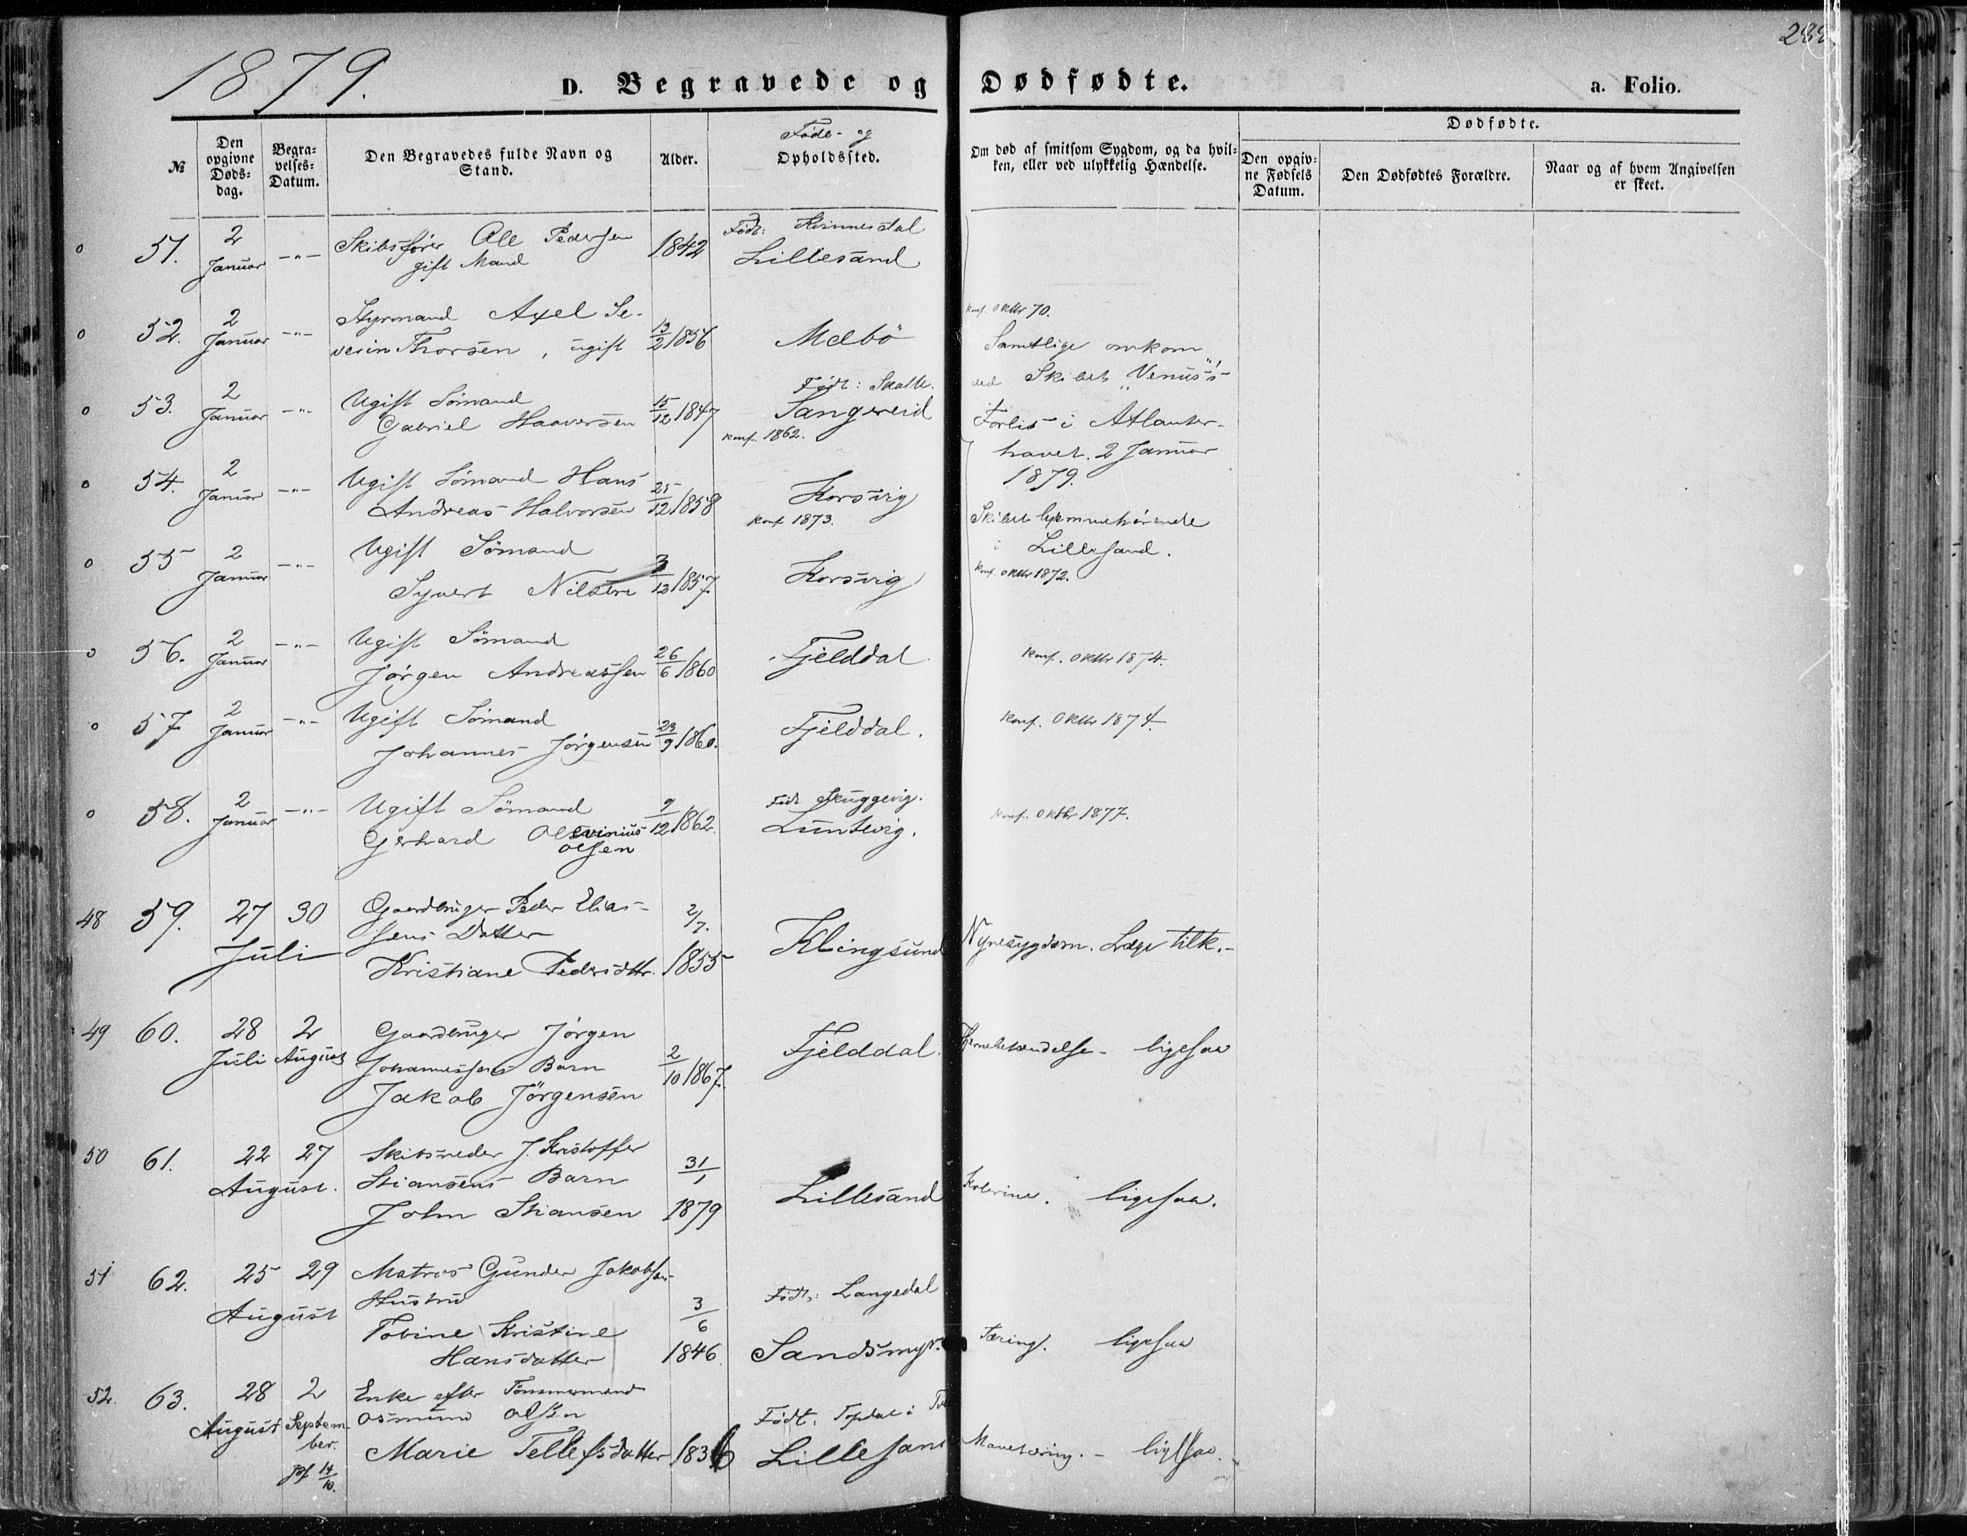 1879.
D. Begravede og Dødfødte.
a. Folio.
No
Den opgivne Døds-dag.
Begra-velses-Datum.
Den Begravedes fulde Navn og Stand.
Alder.
Føde- og Opholdssted.
Om død af smitsom Sygdom, og da hvil-ken, eller ved ulykkelig Hændelse.
Dødfødte.
Den opgiv-ne Fødsels Datum.
Den Dødfødtes Forældre.
Naar og af hvem Angivelsen er skeet.
o 51. 2 Januar -"- Skibsfører Ole Pedersen 1842 Født: Kvinnesdal
gift Mand Lillesand
o 52. 2 Januar -"- Styrmand Axel Se- 13/2 1856 Mebö konf. Oktbr 70.
verin Thorsen, ugift Samtlige omkom
ved Skibet "Venus"'s
o 53. 2 Januar -"- Ugift Sömand 15/12 1847 Født: Skatte.
Gabriel Haaversen Sangereid Forlis i Atlanter-
konf. 1862. havet 2 Januar
1879.
o 54. 2 Januar -"- Ugift Sömand Hans 25/12 1858 Korsvig
Andreas Halvorsen konf 1873. Skibet hjemmehørende
i Lillesand.
o 55 2 Januar -"- Ugift Sömand 3/12 1857. Korsvig konf. Oktbr 1872.
Syvert Nilsen
o 56. 2 Januar -"- Ugift Sömand 26/6 1860 Fjelddal konf. Oktbr 1874.
Jörgen Andreassen
o 57 2 Januar -"- Ugift Sömand 23/9 1860. Fjelddal. konf. Oktbr 1874.
Johannes Jörgensen
o 58. 2 Januar -"- Ugift Sömand 9/12 1862. Født Skuggevig. konf. Oktbr 1877.
Gerhard Olevinius Luntevig.
Olsen
48 59. 27 30 Juli Gaardbruger Peder Elias- 2/7. 1855 Klingsund Nyresygdom. Læge tilk.-
sens Datter
Kristiane Pedersdttr.
49 60. 28 Juli 2 August Gaardbruger Jörgen 2/10 1867. Fjelddal. Hjernebetændelse - ligesaa
Johannessens Barn
Jakob Jörgensen
50 61. 22 27 August. Skibsreder J. Kristoffer 31/1 1879 Lillesand Kolerine. ligesaa.
Stiansens Barn
John Stiansen
51 62. 25 29 August Matros Gunder Jakobsens 3/6 1846. Født: Langedal
Hustru
Tobine Kristine Sandsmyr. Tæring. ligesaa
Hansdatter
52. 63. 28 August 2 September. Enke efter Tömmermand 1836 Født: Topdal i
Osmund Olsen
Marie Tellefsdatter Lillesand Mavetæring. - ligesaa.
Jof 14/10.